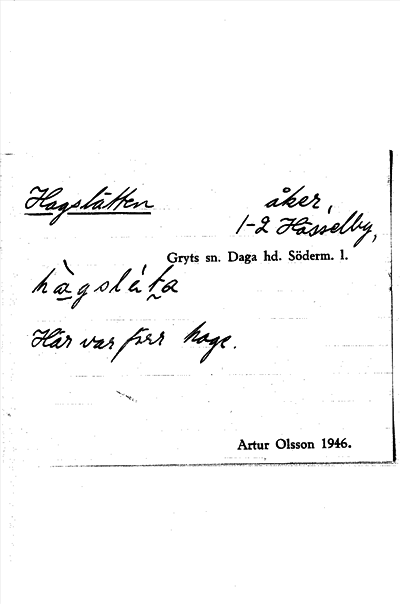 Hagslätten
åker,
1-2 Hässelby,
Gryts sn. Daga hd. Söderm. l.
hàgslá̈ta
Här var förr hage.
Artur Olsson 1946.